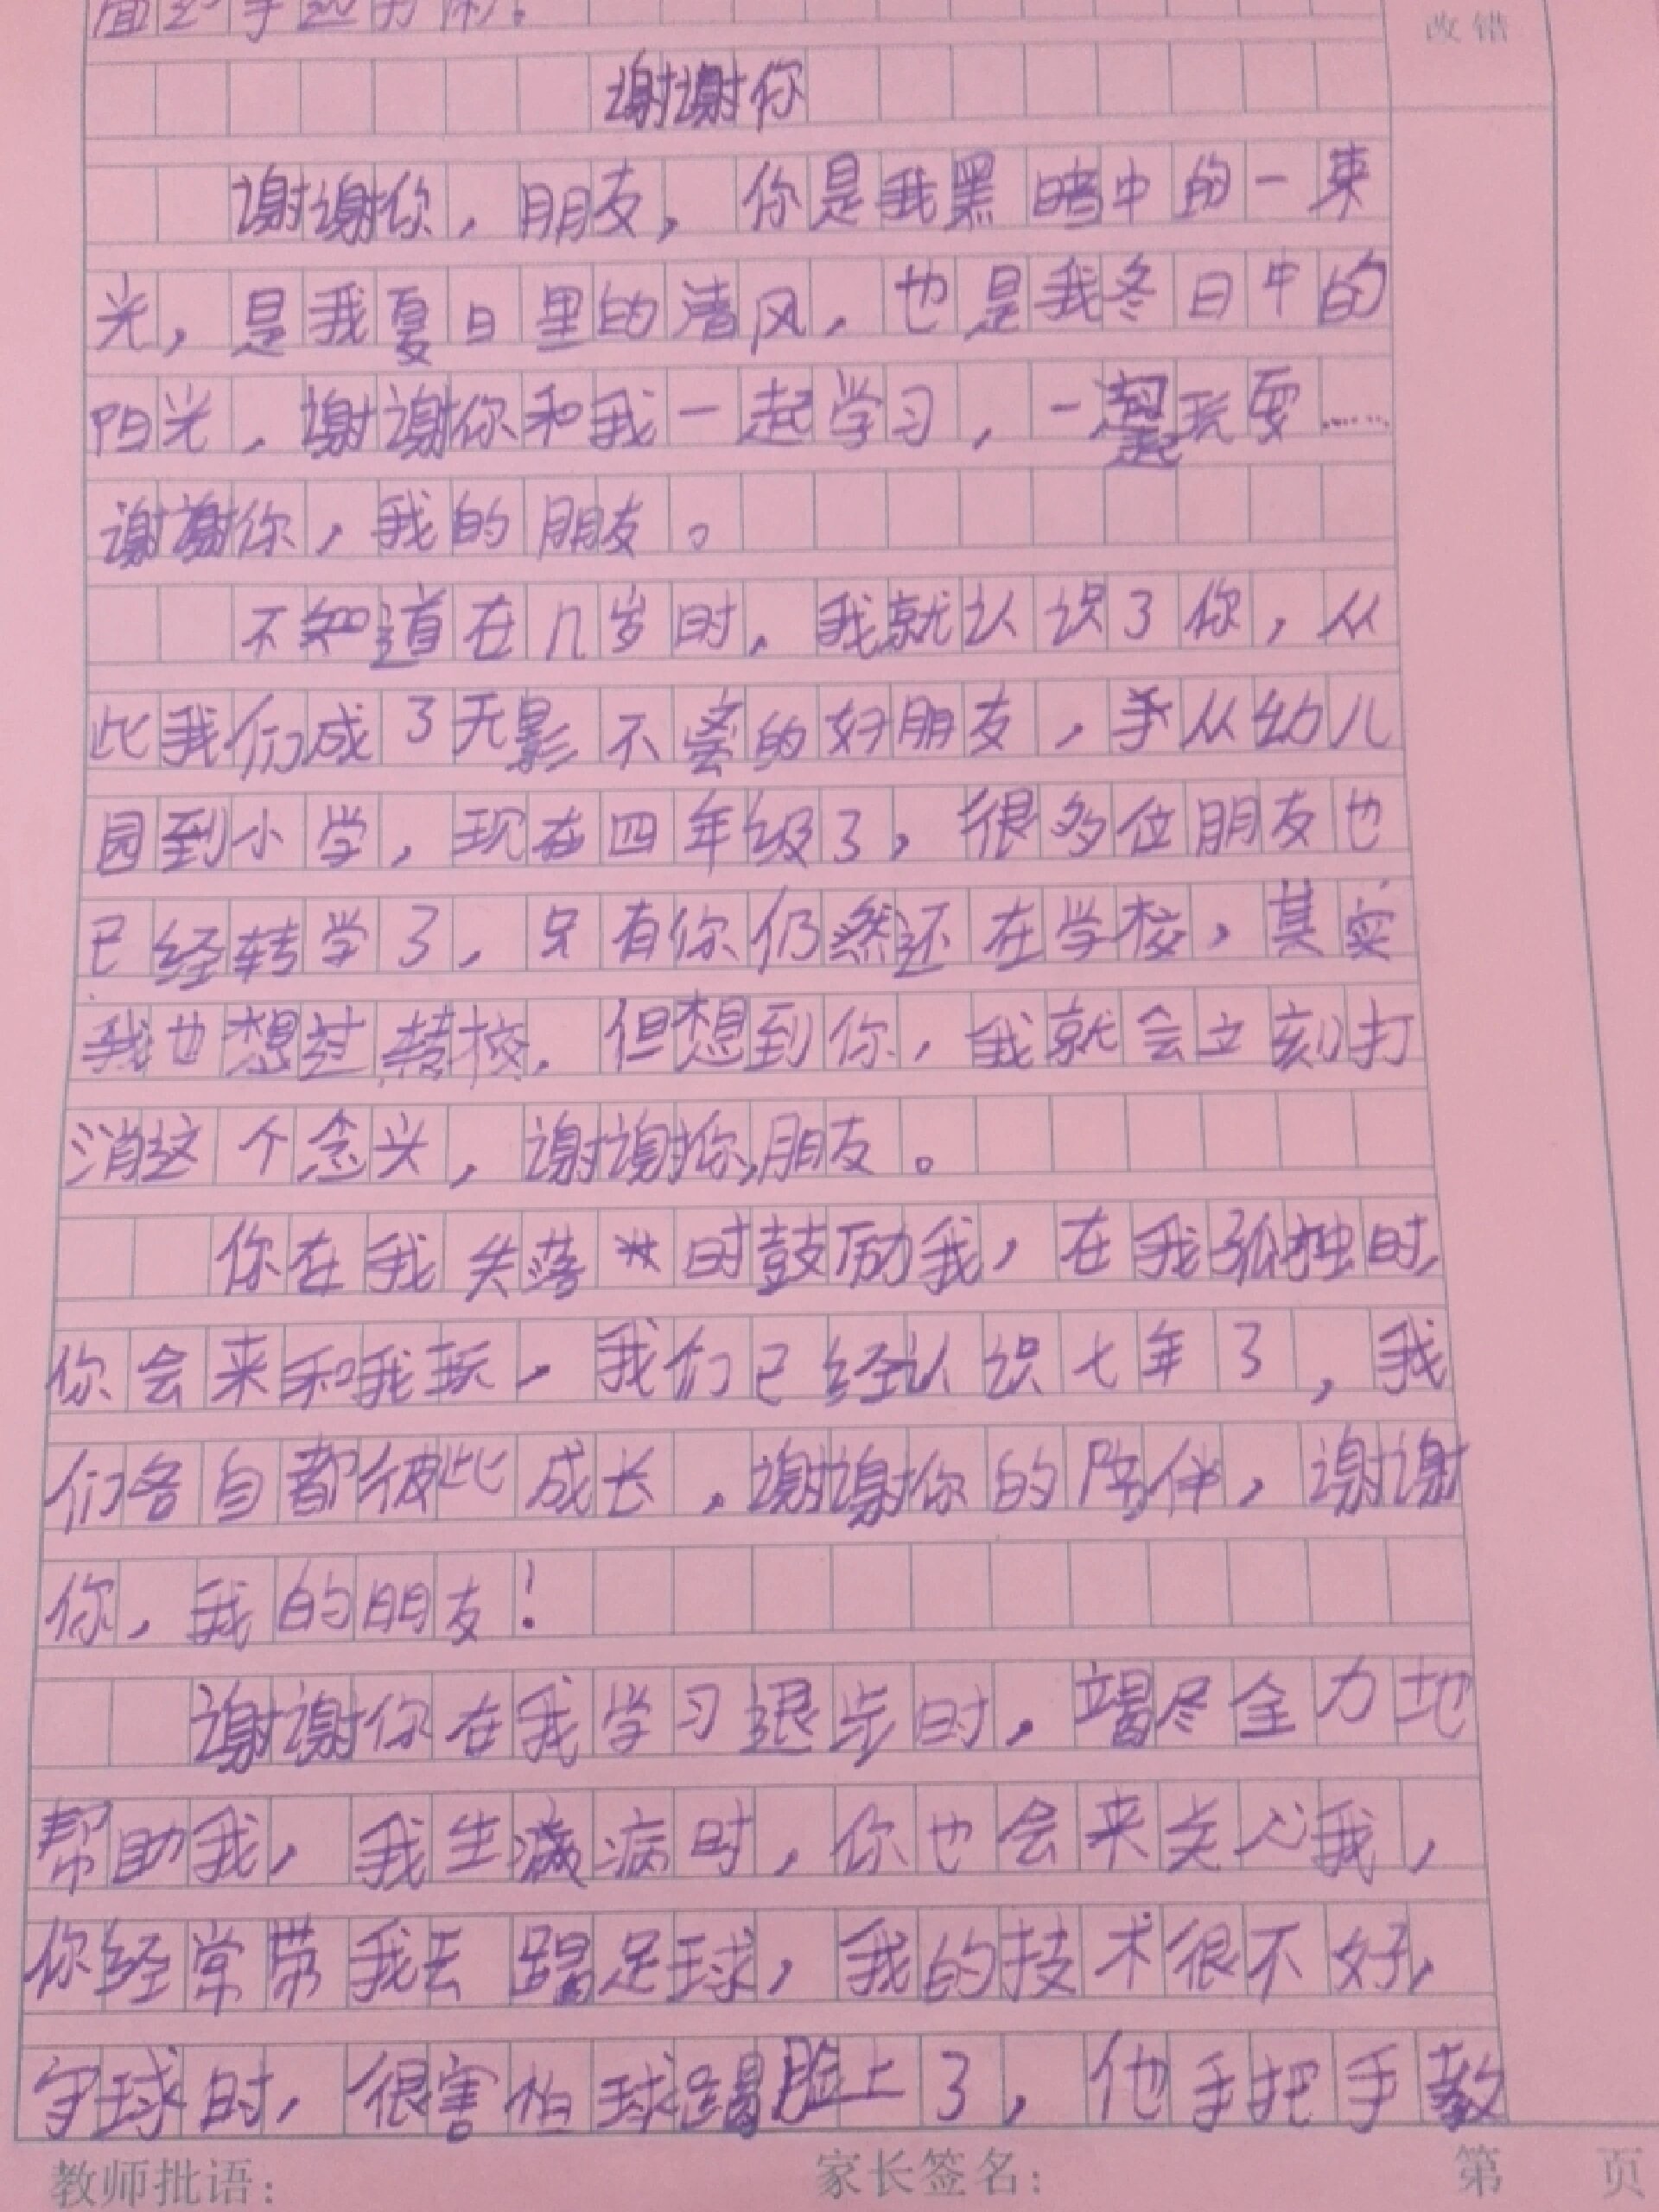 改错
谢谢你
谢谢你，朋友，你是我黑暗中的一束
光，是我夏日里的清风，也是我冬日中的
阳光，谢谢你和我一起学习，一起玩耍……
谢谢你，我的朋友。
不知道在几岁时，我就认识了你，从
此我们成了无影不离的好朋友，从幼儿
园到小学，现在四年级了，很多位朋友也
已经转学了，只有你仍然还在学校，其实
我也想过转校，但想到你，我就会立刻打
消这个念头，谢谢你，朋友。
你在我失落时鼓励我，在我孤独时，
你会来和我玩，我们已经认识七年了，我
们各自都彼此成长，谢谢你的陪伴，谢谢
你，我的朋友！
谢谢你在我学习退步时，竭尽全力地
帮助我，我生病时，你也会来关心我，
你经常带我去踢足球，我的技术很不好，
守球时，很害怕球踢脸上了，他手把手教
教师批语：
家长签名：
第 页